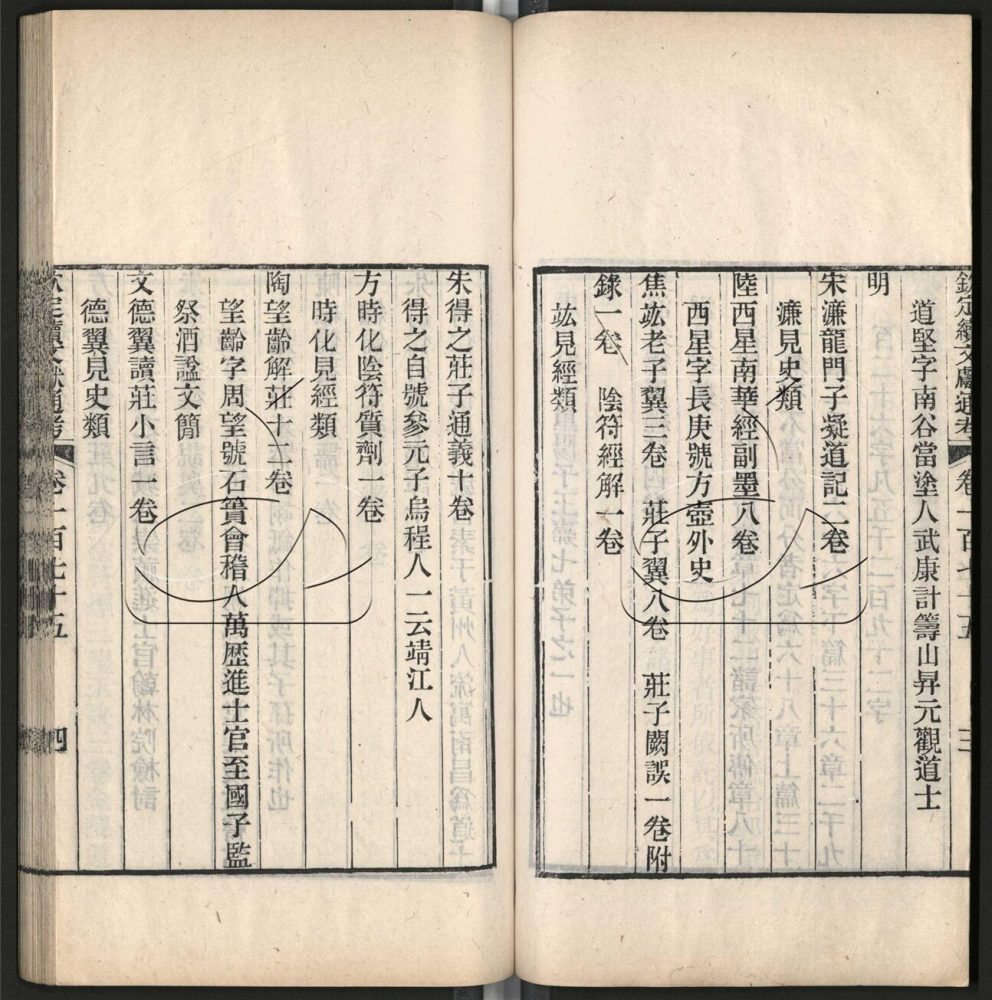 欽定續文獻通考 卷一百七十五 三
道堅字南谷當塗人武康計籌山昇元觀道士
明
宋濂龍門子凝道記二卷
濂見史類
陸西星南華經副墨八卷
西星字長庚號方壺外史
焦竑老子翼三卷 莊子翼八卷 莊子闕誤一卷附
錄一卷 陰符經解一卷
竑見經類
朱得之莊子通義十卷
得之自號參元子烏程人一云靖江人
方時化陰符質劑一卷
時化見經類
陶望齡解莊十二卷
望齡字周望號石簣會稽人萬歷進士官至國子監
祭酒諡文簡
文德翼讀莊小言一卷
德翼見史類
欽定續文獻通考 卷一百七十五 四